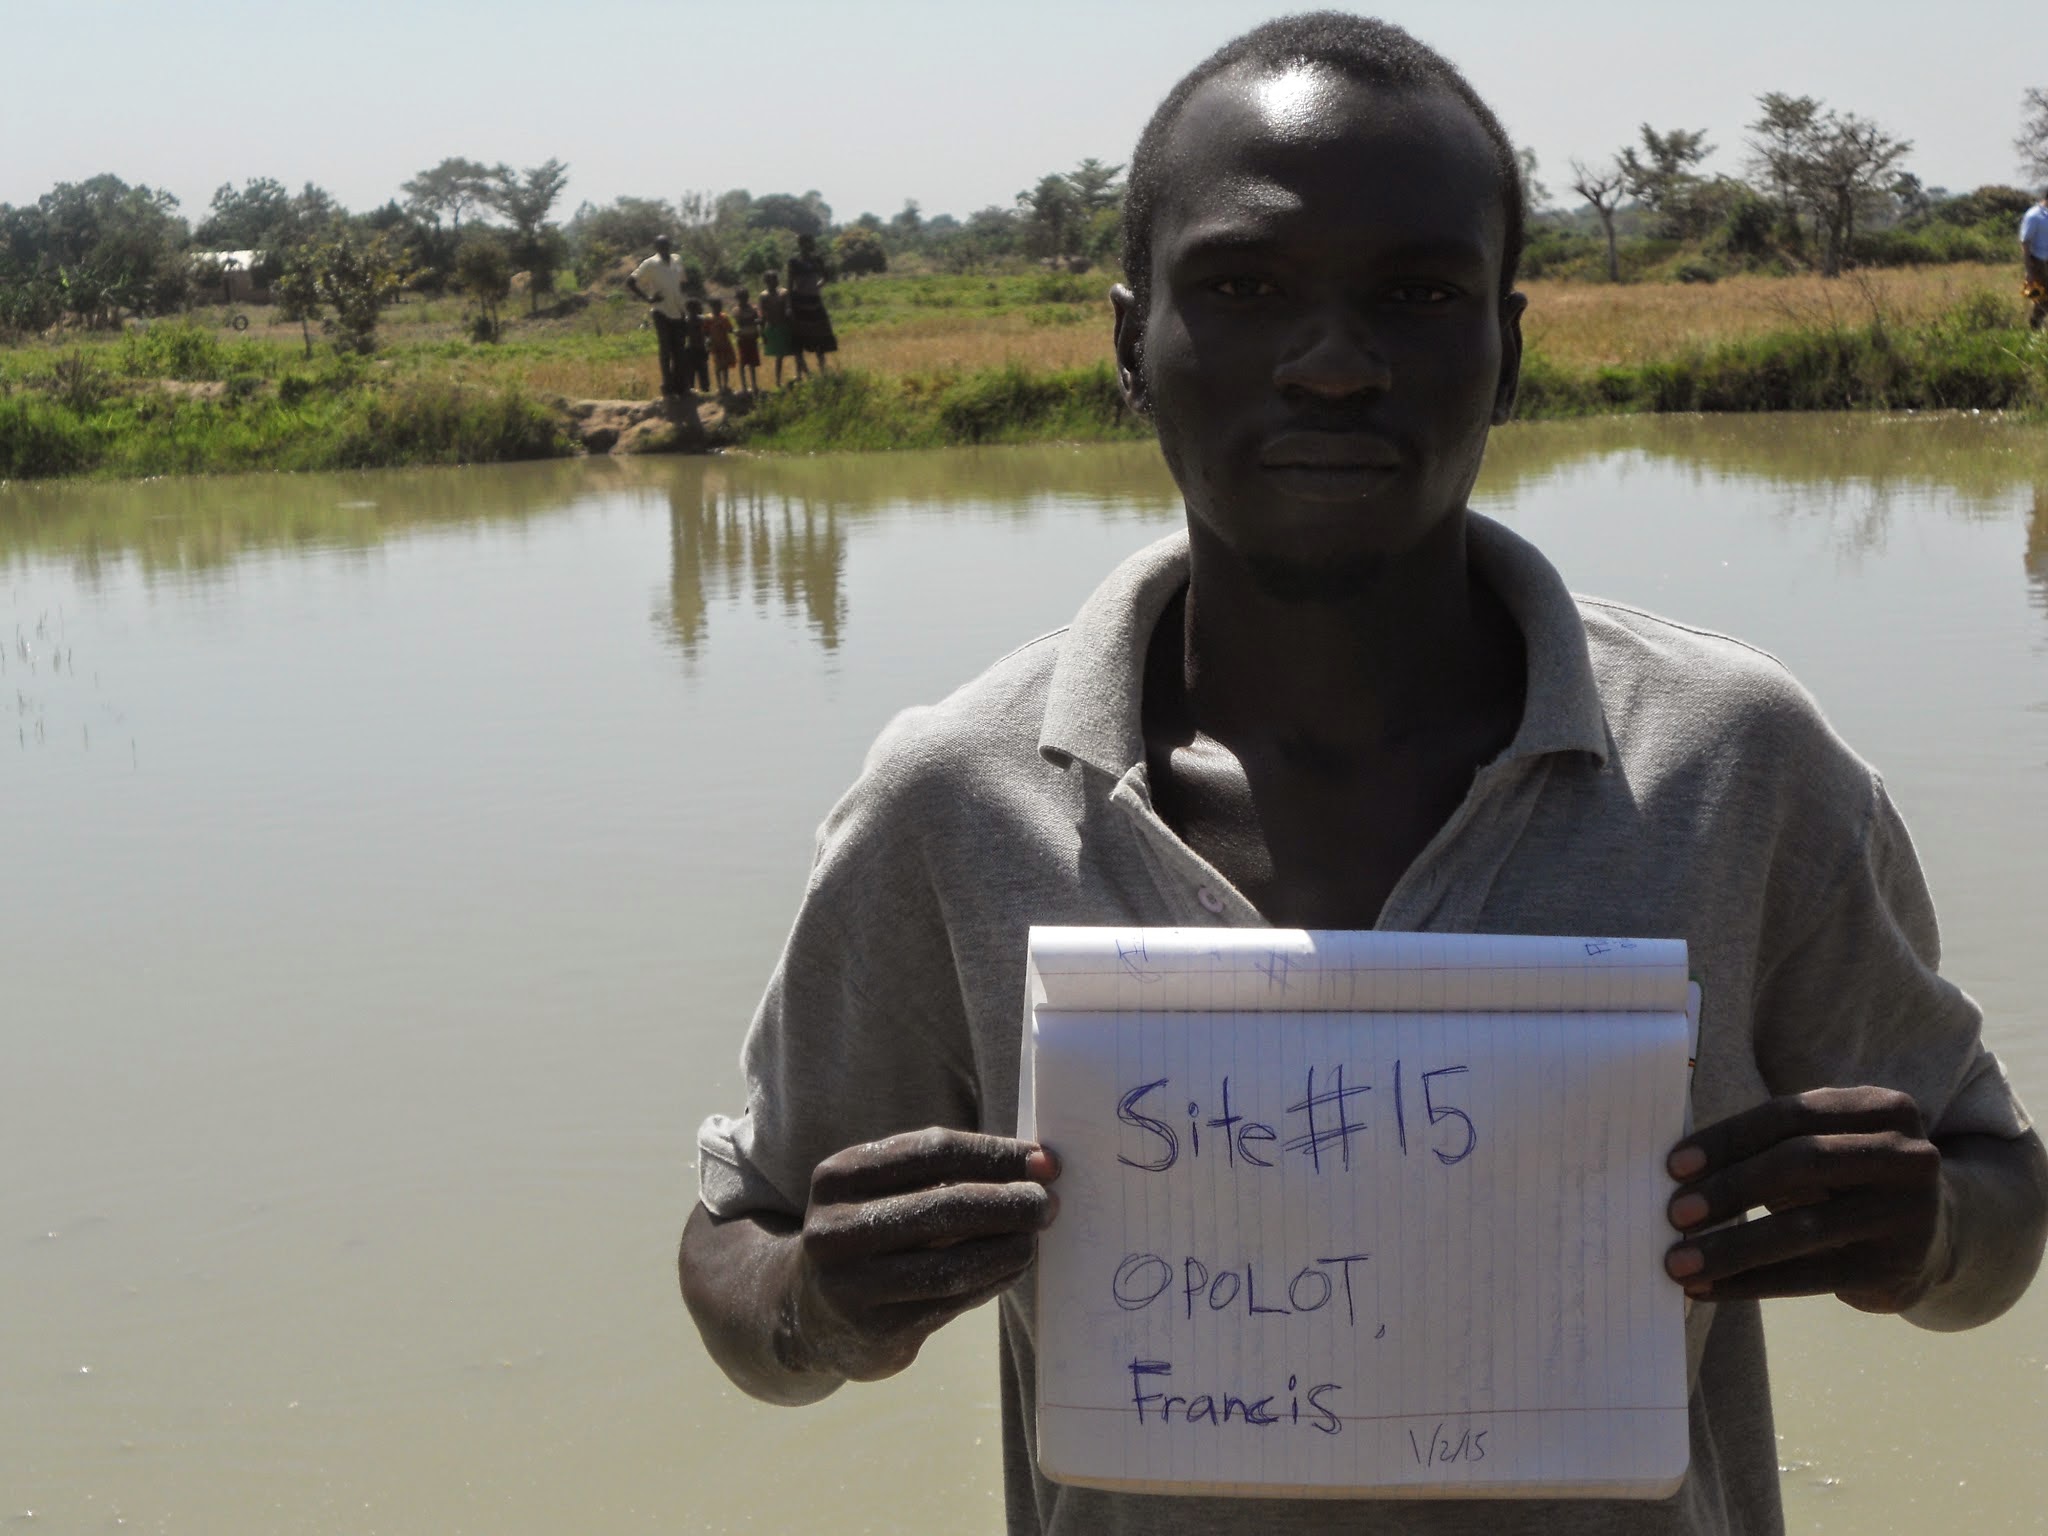 Site #15
OPOLOT,
Francis
1/2/15